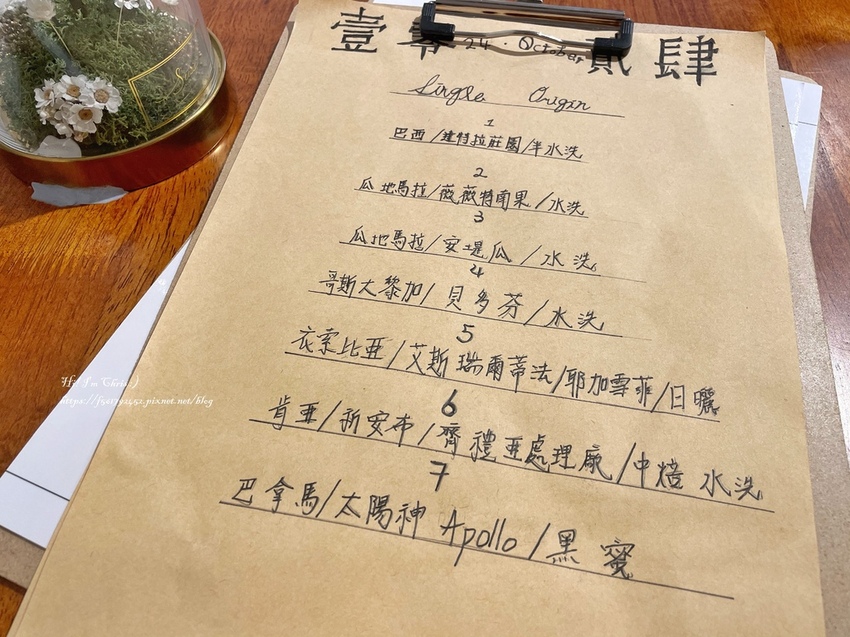 壹零貳肆
24 · October
Single Origin
1
巴西/達特拉莊園/半水洗
2
瓜地馬拉/薇薇特南果/水洗
3
瓜地馬拉/安堤瓜/水洗
4
哥斯大黎加/貝多芬/水洗
5
衣索比亞/艾斯瑞爾蒂法/耶加雪菲/日曬
6
肯亞/新安布/齊禮亞處理廠/中焙 水洗
7
巴拿馬/太陽神 Apollo/黑蜜
Hi I'm Chris:)
https://j521792452.pixnet.net/blog